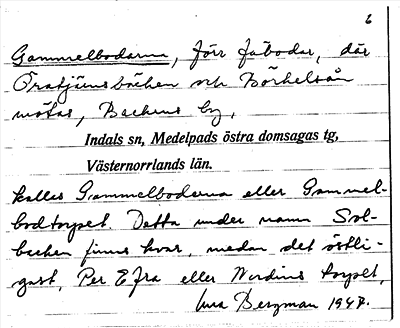 6
Gammelbodarna, förr fäbodar, där
Öratjärnsbäcken och Börkelsån
mötas, Backens by,
Indals sn, Medelpads östra domsagas tg,
Västernorrlands län.
kallas Gammelboderna eller Gammel-
bodtorpet. Detta under namn Sol-
backen finns kvar, medan det östli-
gast, Per Efra eller Nordins torpet,
Bergman 1947.